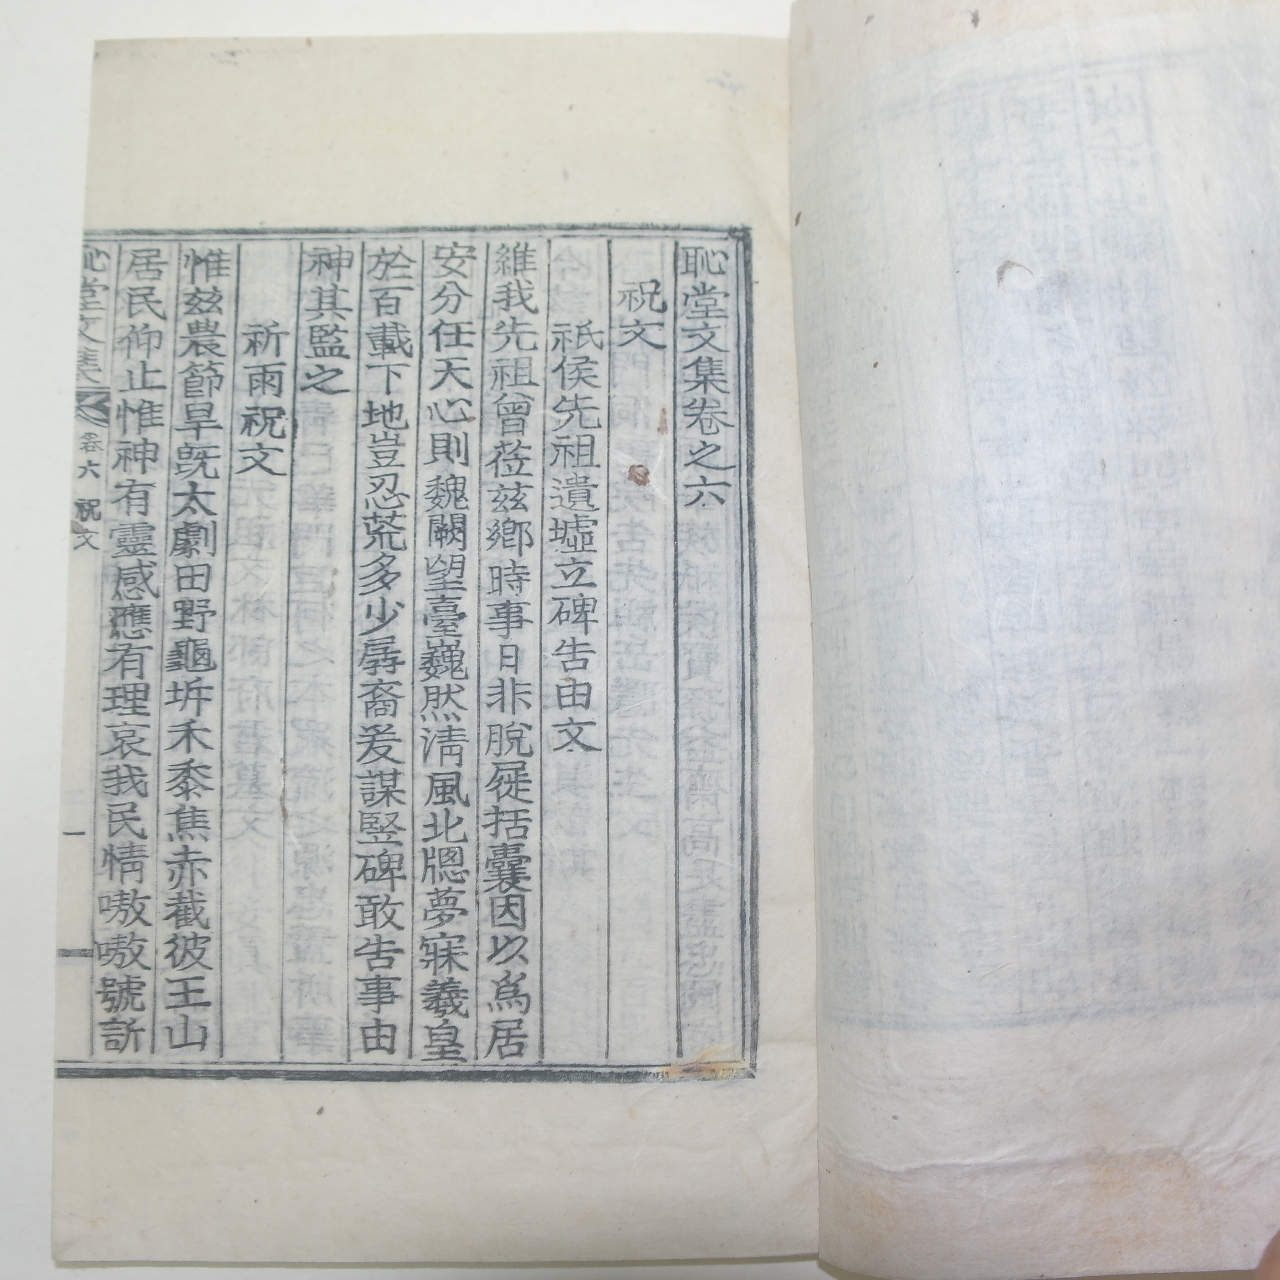 恥堂文集卷之六
祝文
祇侯先祖遺墟立碑告由文
維我先祖曾莅玆鄉時事日非脫屣括囊因以爲居
安分任天心則魏闕望臺巍然淸風北窓夢寐羲皇
於百載下地豈忍荒多少孱裔爰謀竪碑敢告事由
神其監之
祈雨祝文
惟玆農節旱旣太劇田野龜坼禾黍焦赤截彼王山
居民仰止惟神有靈感應有理哀我民情嗷嗷號訴
恥堂文集 卷六 祝文 一